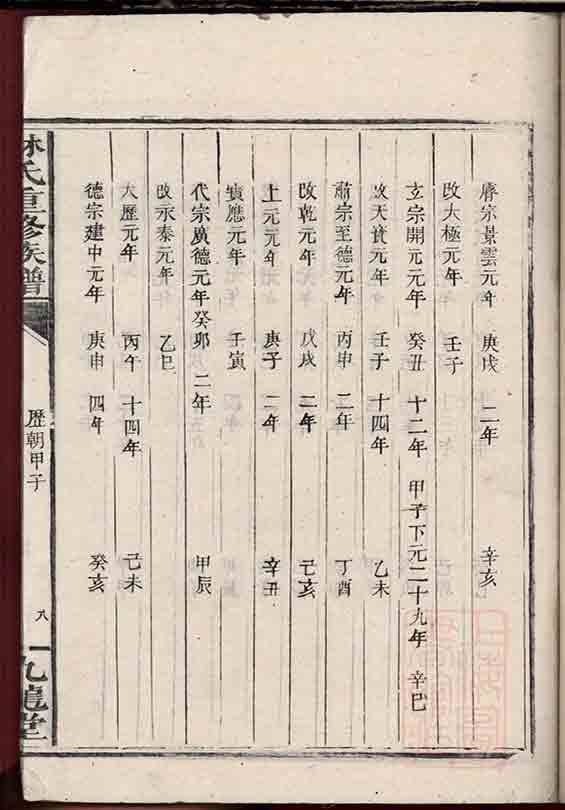 睿宗景雲元年 庚戌 二年 辛亥
改太極元年 壬子
玄宗開元元年 癸丑 十二年 甲子下元二十九年 辛巳
改天寶元年 壬子 十四年 乙未
肅宗至德元年 丙申 二年 丁酉
改乾元元年 戊戌 二年 己亥
上元元年 庚子 二年 辛丑
寶應元年 壬寅
代宗廣德元年 癸卯 二年 甲辰
改永泰元年 乙巳
大歷元年 丙午 十四年 己未
德宗建中元年 庚申 四年 癸亥
林氏重修族譜
歷朝甲子
八
九龍堂